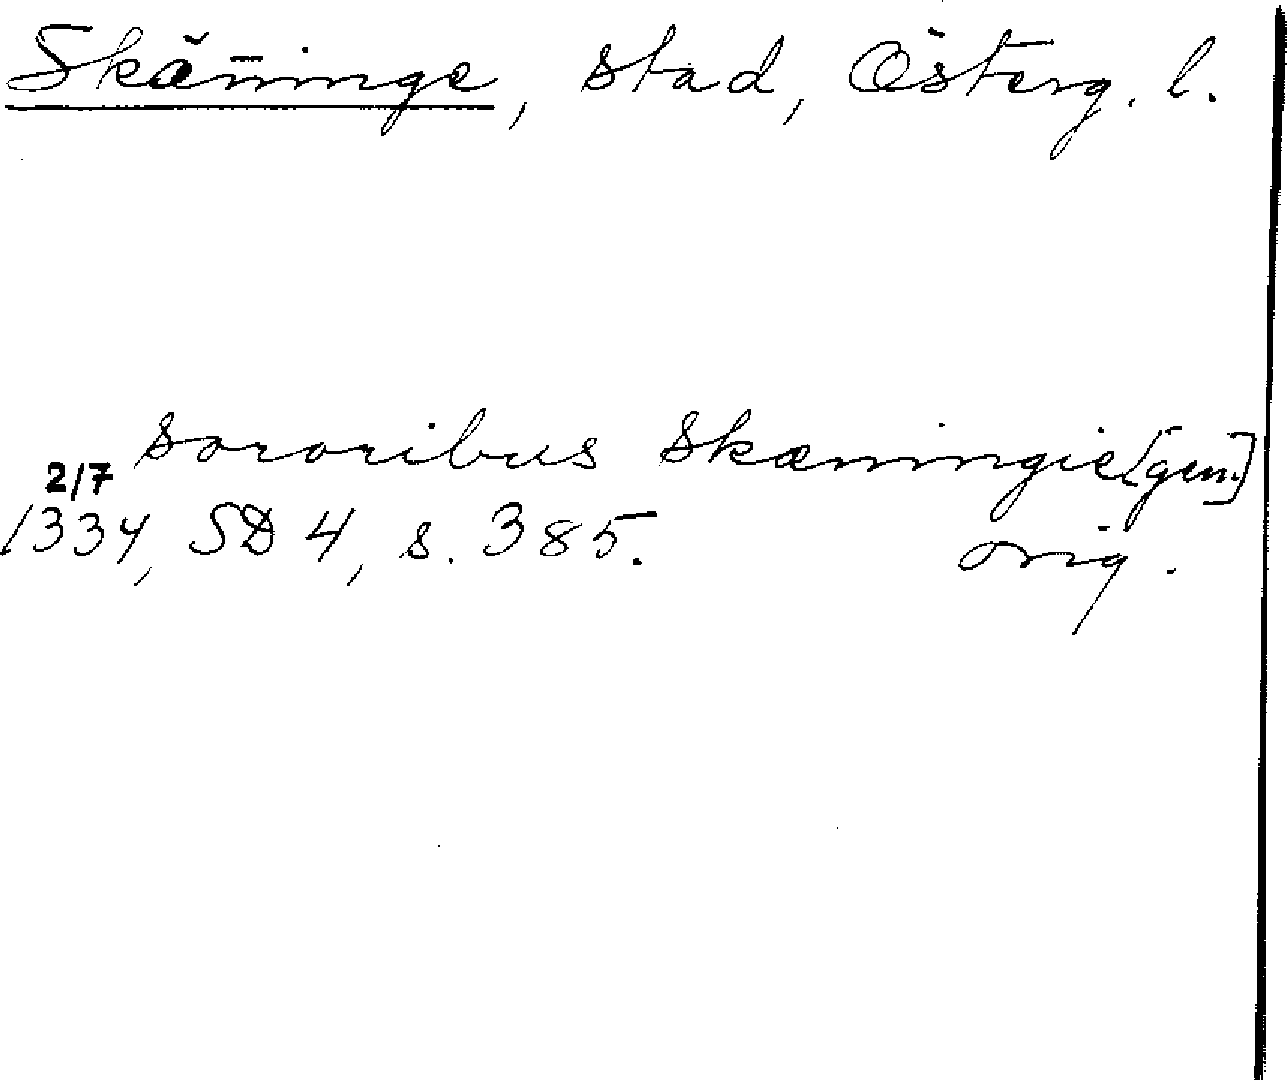 Skänninge, stad, Österg. l.
sororibus Skæningie [gen.]
2/7
1334, SD 4, s. 385. orig.